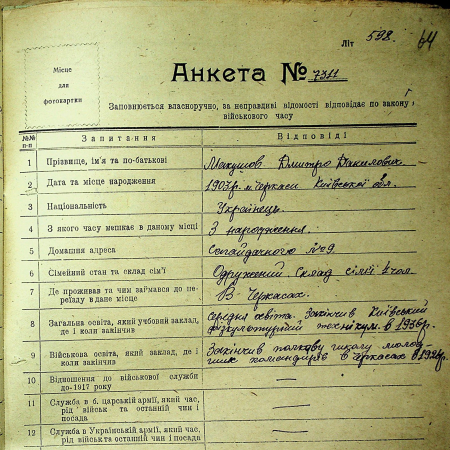 Літ 598. 64
Місце
для
фотокартки
Анкета № 7311
Заповнюється власноручно, за неправдиві відомості відповідає по закону
військового часу
№№ п-п
Запитання
Відповіді
1 Прізвище, ім'я та по-батькові Макушов Дмитро Данилович
2 Дата та місце народження 1903 р. м. Черкаси Київської обл.
3 Національність Українець.
4 З якого часу мешкає в даному місці З народження.
5 Домашня адреса Сагайдачного №9
6 Сімейний стан та склад сім'ї Одружений. Склад сімї 4 чол.
7 Де проживав та чим займався до переїзду в дане місце В Черкасах.
8 Загальна освіта, який учбовий заклад, де і коли закінчив Середня освіта. Закінчив Київський
фізкультурний технікум в 1936 р.
9 Військова освіта, який заклад, де і коли закінчив Закінчив полкову школу молод-
ших командирів в Черкасах в 1928 р.
10 Відношення до військової служби до-1917 року —
11 Служба в б. царській армії, який час, рід військ та останній чин і посада —
12 Служба в Українській армії, який час, рід військ та останній чин і посада —